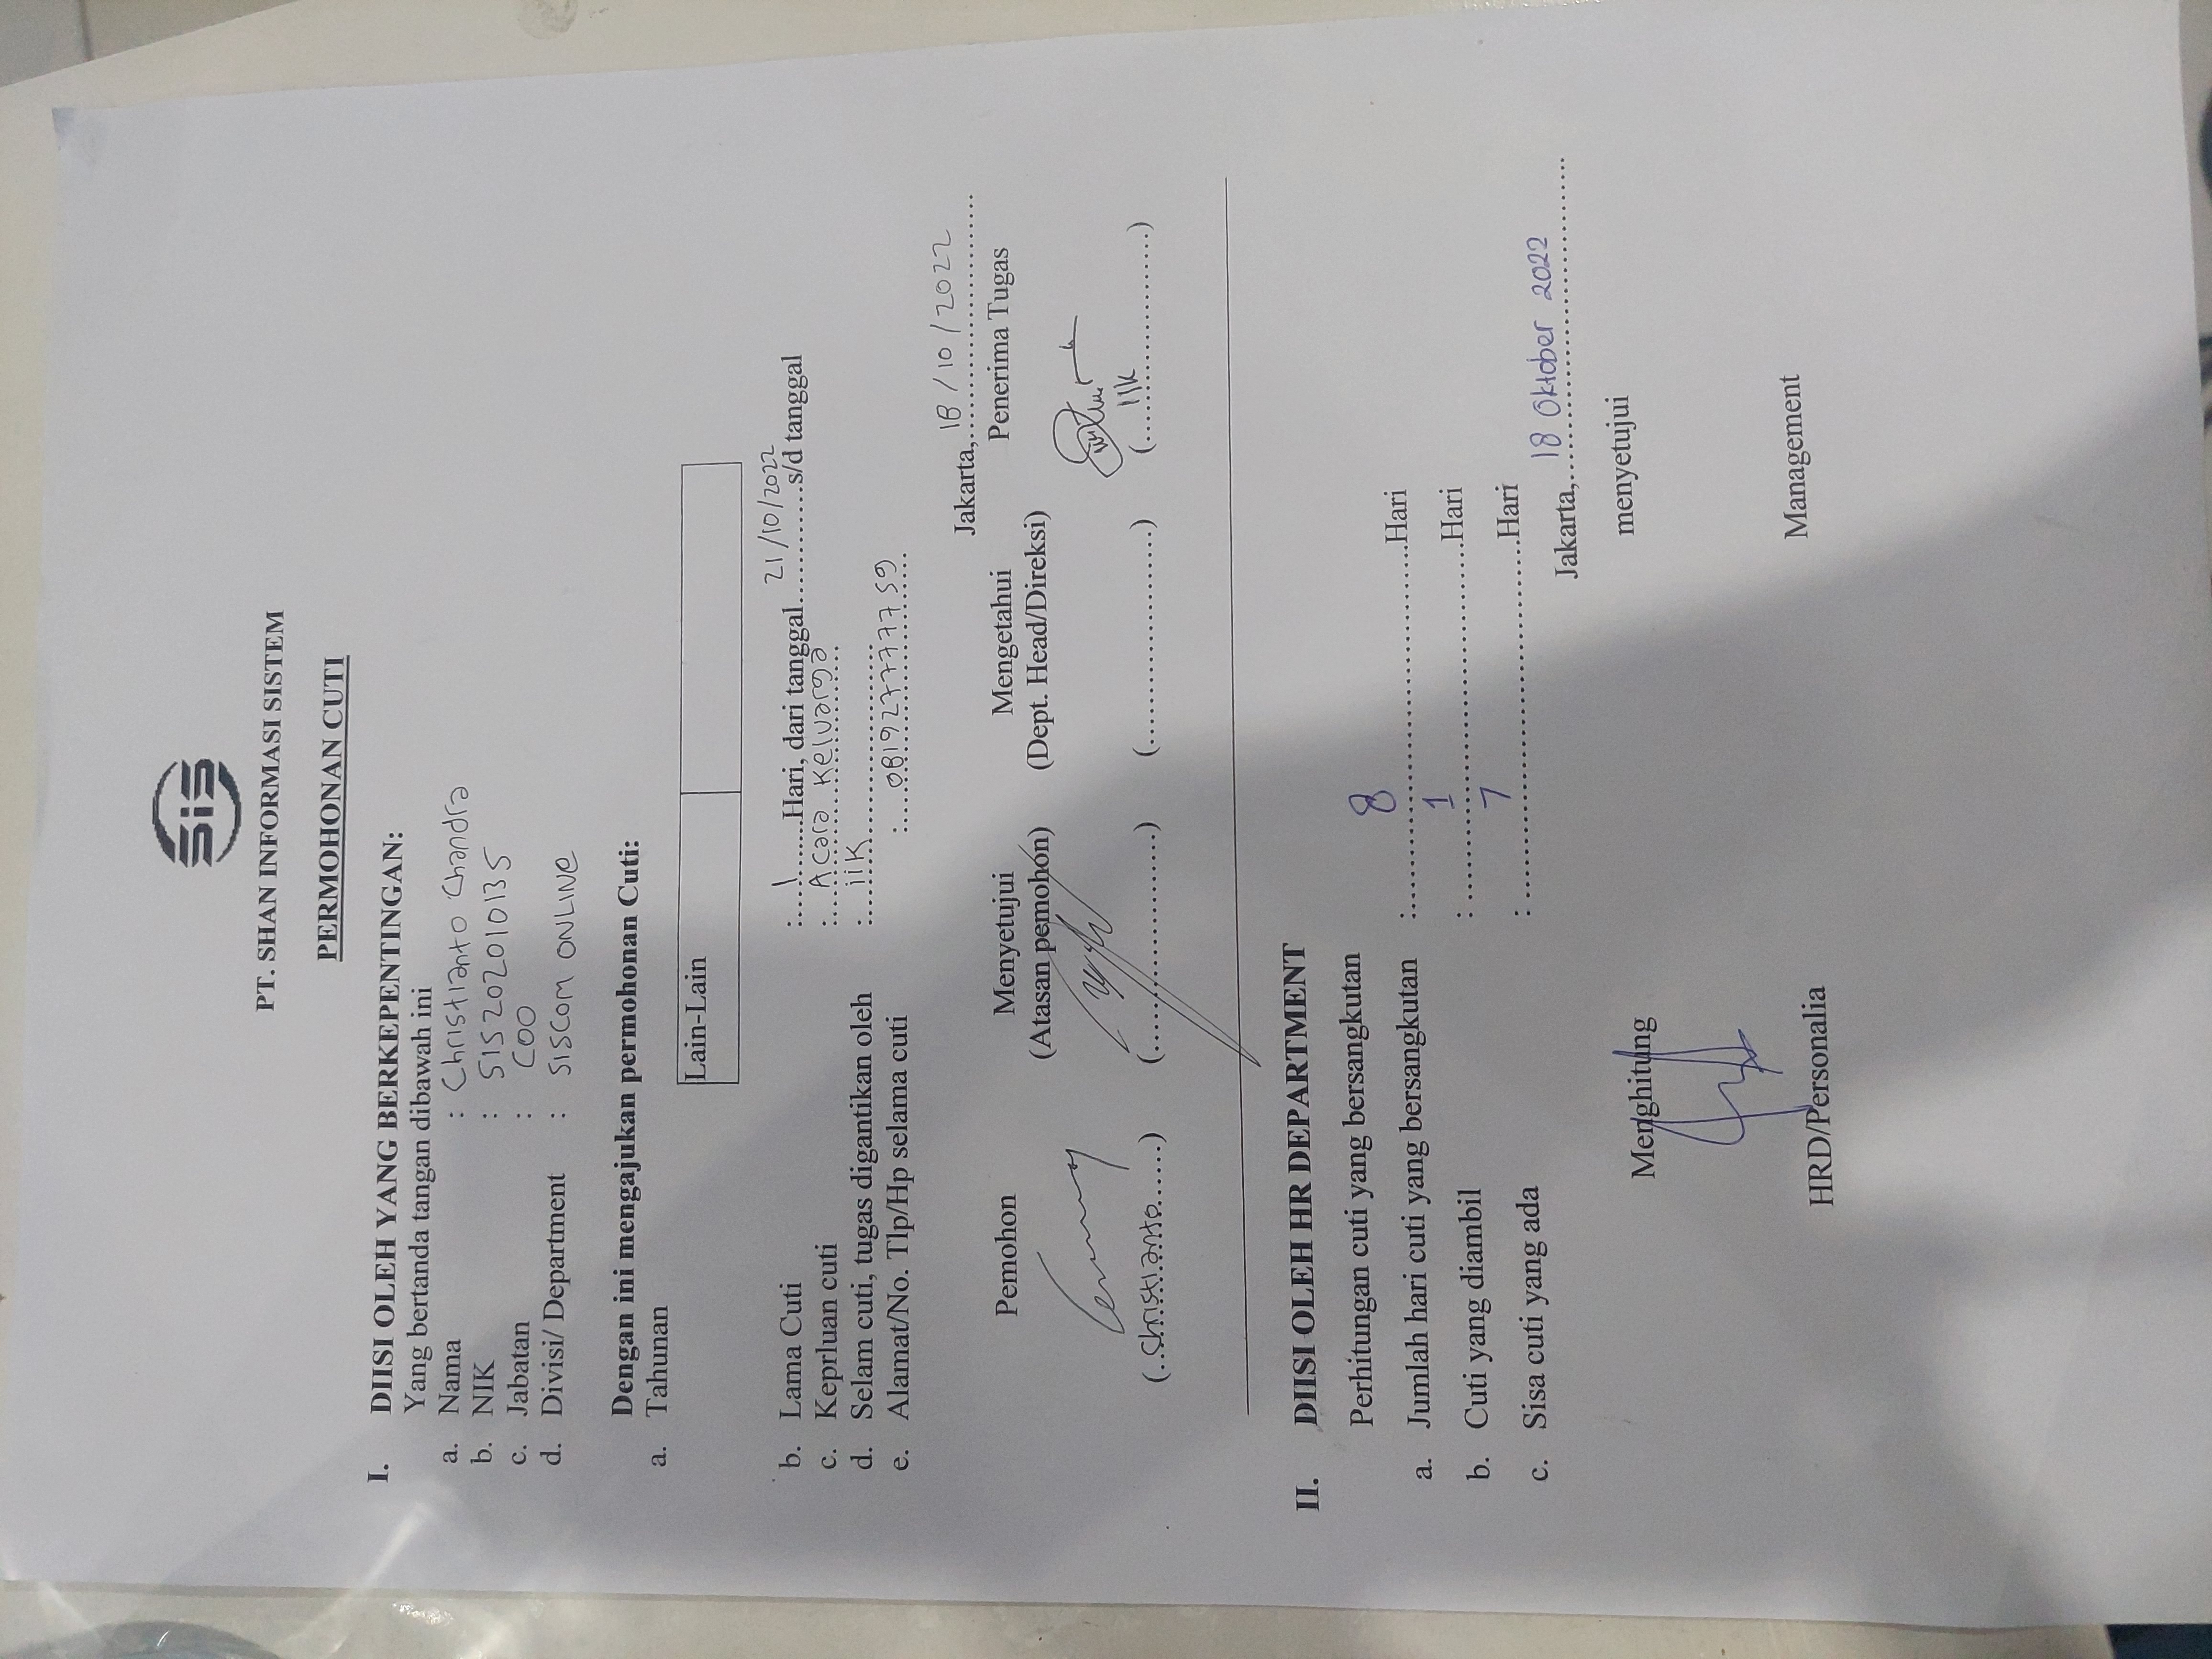 SiS
PT. SHAN INFORMASI SISTEM
PERMOHONAN CUTI
I. DIISI OLEH YANG BERKEPENTINGAN:
Yang bertanda tangan dibawah ini
a. Nama : Christianto Chandra
b. NIK : SIS202010135
c. Jabatan : COO
d. Divisi/ Department : SISCOM ONLINE
Dengan ini mengajukan permohonan Cuti:
a. Tahunan
Lain-Lain
b. Lama Cuti :....1.......Hari, dari tanggal 21/10/2022 s/d tanggal
c. Keprluan cuti : Acara Keluarga
d. Selam cuti, tugas digantikan oleh : iik
e. Alamat/No. Tlp/Hp selama cuti : 081927777759
Jakarta, 18/10/2022
Pemohon Menyetujui Mengetahui Penerima Tugas
(Atasan pemohon) (Dept. Head/Direksi)
(..Christianto......) (........................) (........................) (....iik................)
II. DIISI OLEH HR DEPARTMENT
Perhitungan cuti yang bersangkutan
a. Jumlah hari cuti yang bersangkutan : 8 Hari
b. Cuti yang diambil : 1 Hari
c. Sisa cuti yang ada : 7 Hari
Jakarta, 18 Oktober 2022
Menghitung menyetujui
HRD/Personalia Management